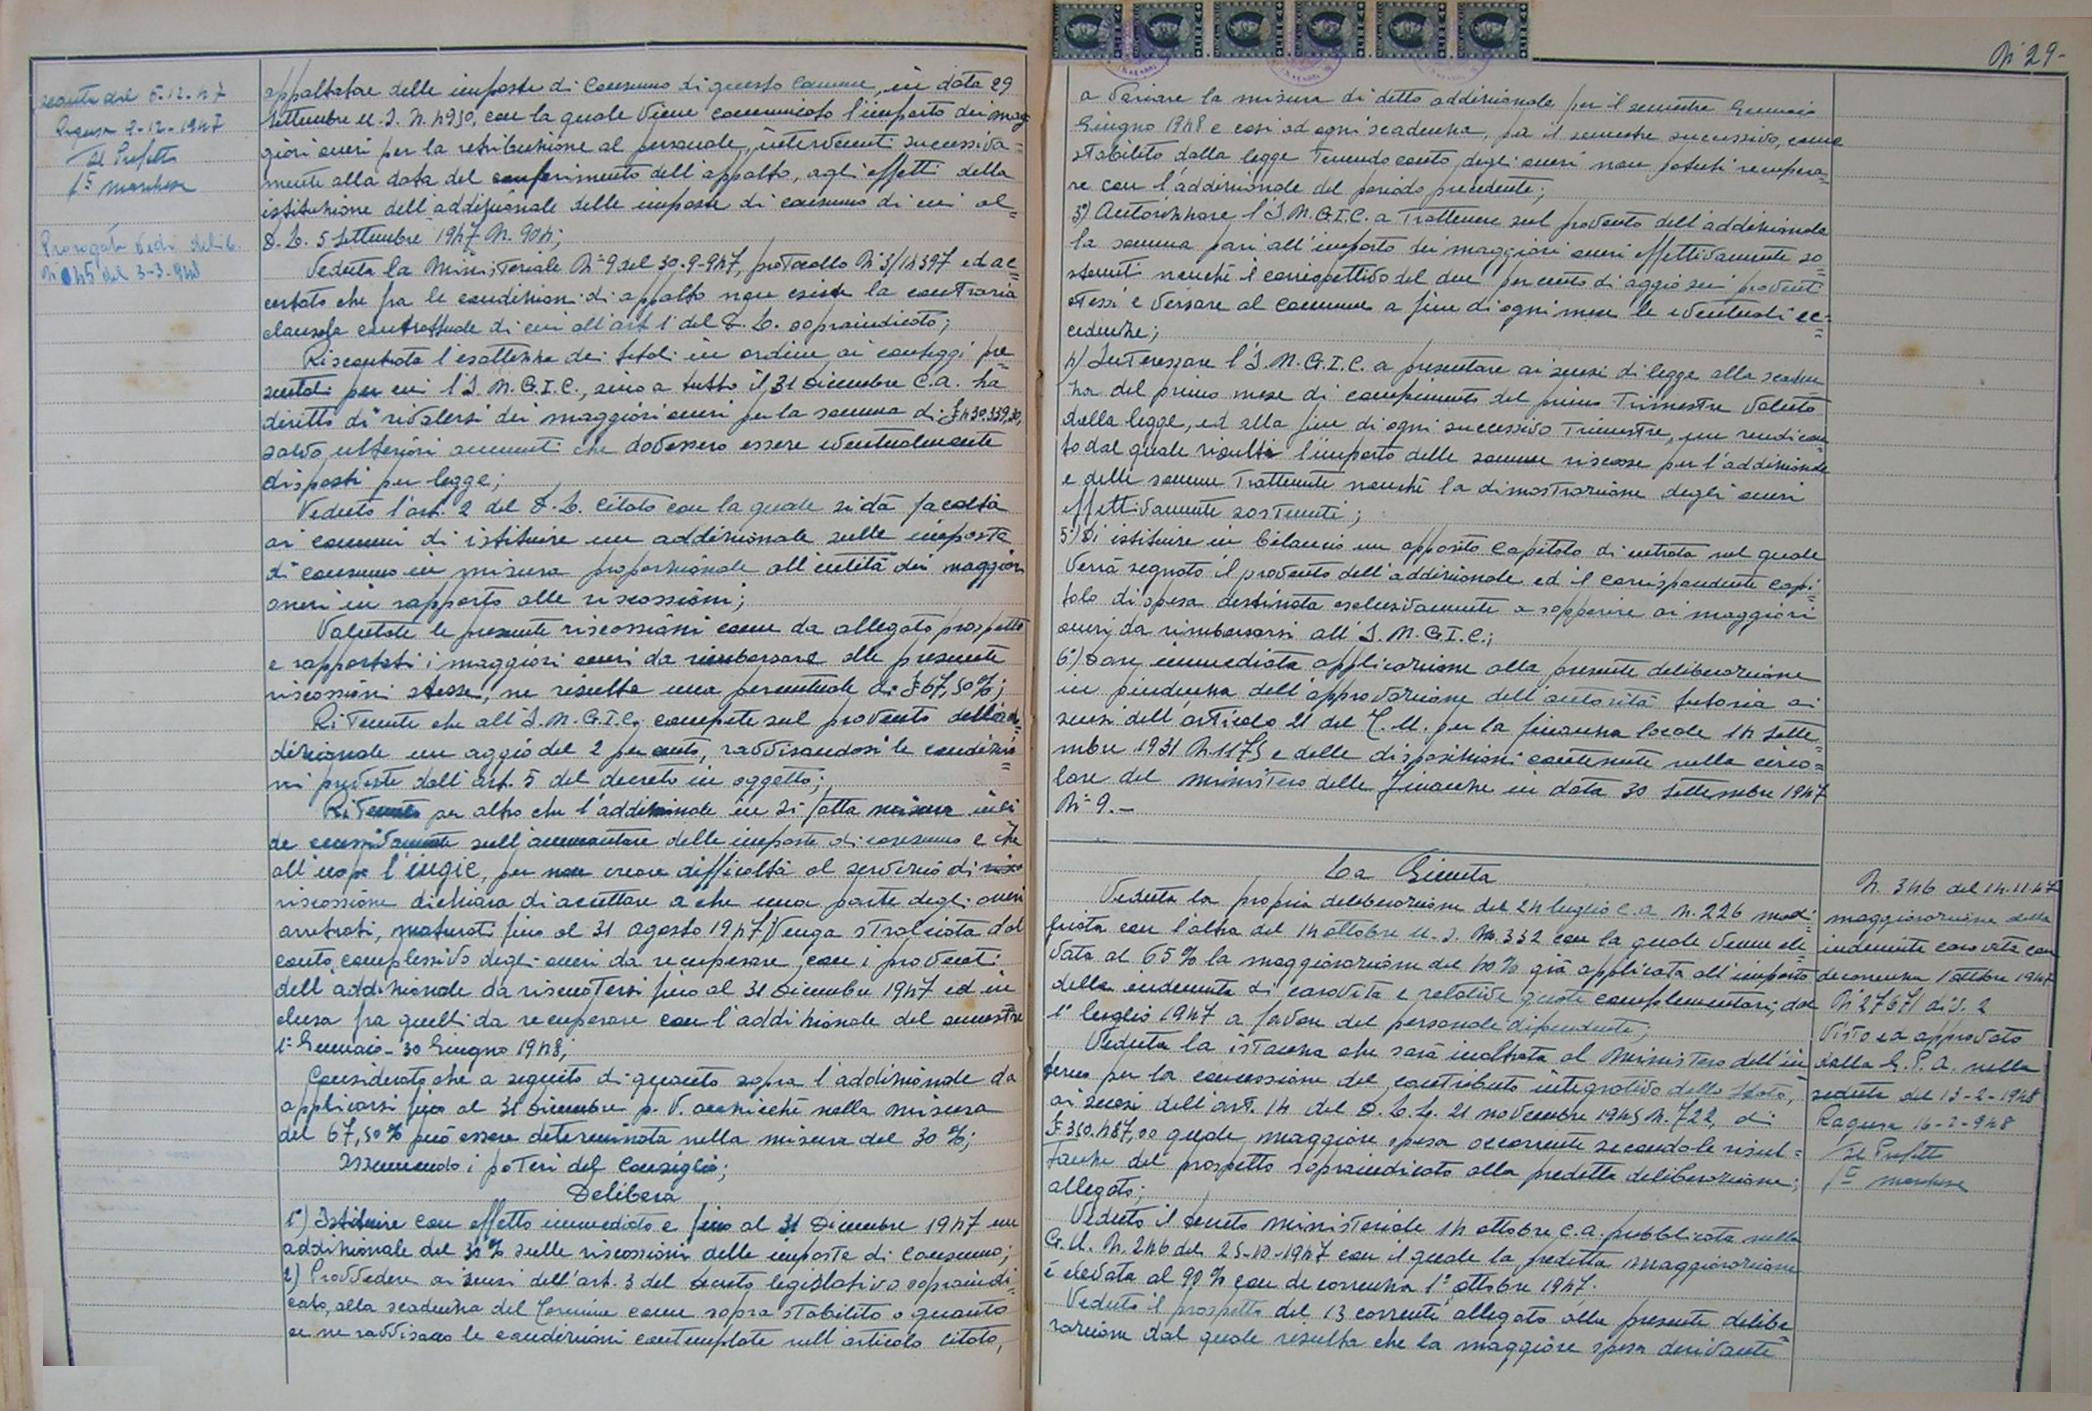 seduta del 5.12.47
Ragusa 9-12-1947
Il Prefetto
Prorogata Vedi delib.
N 45 del 3-3-948
appaltatore delle imposte di consumo di questo Comune, in data 29
settembre u.s. N. 4930, con la quale viene comunicato l'importo dei mag
giori oneri per la retribuzione al personale, intervenuti successiva=
mente alla data del conferimento dell'appalto, agli effetti della
istituzione dell'addizionale delle imposte di consumo di cui al=
D.L. 5 settembre 1947 N. 904;
Veduta la Ministeriale N° 9 del 30-9-947, protocollo N° 3/14397 ed ac=
certato che fra le condizioni di appalto non esiste la contraria
clausola contrattuale di cui all'art 1 del D.L. sopraindicato;
Riscontrata l'esattezza dei totali in ordine ai conteggi pre=
sentati per cui l'I.N.G.I.C., sino a tutto il 31 dicembre c.a. ha
diritto di rivalersi dei maggiori oneri per la somma di £ 430.339,30,
salvo ulteriori aumenti che dovessero essere eventualmente
disposti per legge;
Veduto l'art. 2 del D.L. citato con la quale si dà facoltà
ai comuni di istituire un addizionale sulle imposte
di consumo in misura proporzionale all'entità dei maggiori
oneri in rapporto alle riscossioni;
Valutate le presunte riscossioni come da allegato prospetto
e rapportati i maggiori oneri da rimborsare alle presunte
riscossioni stesse, ne risulta una percentuale di £ 67,50%;
Ritenuto che all'I.N.G.I.C. compete sul provento dell'ad=
dizionale un aggio del 2 per cento, ravvisandosi le condizio=
ni previste dall'art. 5 del decreto in oggetto;
Ritenuto per altro che l'addizionale in sì fatta misura inci
de eccessivamente sull'ammontare delle imposte di consumo e che
all'uopo l'ingic, per non creare difficoltà al servizio di
riscossione dichiara di accettare a che una parte degli oneri
arretrati, maturati fino al 31 agosto 1947 venga stralciata dal
conto complessivo degli oneri da recuperare con i proventi
dell'addizionale da riscuotersi fino al 31 Dicembre 1947 ed in
clusa fra quelli da recuperare con l'addizionale del semestre
1° Gennaio - 30 Giugno 1948;
Considerato che a seguito di quanto sopra l'addizionale da
applicarsi fino al 31 dicembre p.v. anzicché nella misura
del 67,50% può essere determinata nella misura del 30%;
Assumendo i poteri del Consiglio;
Delibera
1°) Istituire con effetto immediato e fino al 31 Dicembre 1947 un
addizionale del 30% sulle riscossioni delle imposte di consumo;
2) Provvedere ai sensi dell'art. 3 del decreto legislativo sopraindi=
cato, alla scadenza del termine come sopra stabilito o quanto
se ne ravvisano le condizioni contemplate nell'articolo citato,
N° 29-
a variare la misura di detta addizionale per il semestre Gennaio
Giugno 1948 e così ad ogni scadenza, per il semestre successivo, come
stabilito dalla legge tenendo conto degli oneri non potuti recupera=
re con l'addizionale del periodo precedente;
3°) Autorizzare l'I.N.G.I.C. a trattenere sul provento dell'addizionale
la somma pari all'importo dei maggiori oneri effettivamente so=
stenuti nonché il corrispettivo del due per cento di aggio sui proventi
stessi e versare al comune a fine di ogni mese le eventuali ec=
cedenze;
4) Interessare l'I.N.G.I.C. a presentare ai sensi di legge alla scaden
za del primo mese di compimento del primo trimestre valuto
dalla legge, ed alla fine di ogni successivo trimestre, un rendicon
to dal quale risulti l'importo delle somme riscosse per l'addizionale
e delle somme trattenute nonché la dimostrazione degli oneri
effettivamente sostenute;
5°) Di istituire in bilancio un apposito capitolo di entrata nel quale
verrà segnato il provento dell'addizionale ed il corrispondente capi=
tolo di spesa destinata esclusivamente a sopperire ai maggiori
oneri da rimborsarsi all'I.N.G.I.C.;
6°) Dare immediata applicazione alla presente deliberazione
in pendenza dell'approvazione dell'autorità tutoria ai
sensi dell'articolo 21 del T.U. per la finanza locale 14 sette=
mbre 1931 N. 1175 e delle disposizioni contenute nella circo=
lare del Ministero delle Finanze in data 30 settembre 1947
N° 9.-
La Giunta
Veduta la propria deliberazione del 24 luglio c.a. N. 226 modi=
ficata con l'altra del 14 ottobre u.s. No. 332 con la quale venne ele
vata al 65% la maggiorazione del 40% già applicata all'importo
della indennità di carovita e relative quote complementari, dal
1° luglio 1947 a favore del personale dipendente;
Veduta la istanza che sarà inoltrata al Ministero dell'in
terno per la concessione del contributo integrativo dello Stato,
ai sensi dell'art. 14 del D.L.L. 21 novembre 1945 N. 722, di
£ 350.487,00 quale maggiore spesa occorrente secondo le risul=
tanze del prospetto sopraindicato alla predetta deliberazione;
allegato;
Veduto il decreto ministeriale 14 ottobre c.a. pubblicato nella
G.U. N. 246 del 25-10-1947 con il quale la predetta maggiorazione
è elevata al 90% con decorrenza 1° ottobre 1947.
Veduto il prospetto del 13 corrente allegato alla presente delibe
razione dal quale risulta che la maggiore spesa derivante
N. 346 del 14.11.47
maggiorazione della
indennità carovita con
decorrenza 1 ottobre 1947
N° 27671 div. 2
Visto ed approvato
dalla G.P.A. nella
seduta del 13-2-1948
Ragusa 16-2-948
Il Prefetto